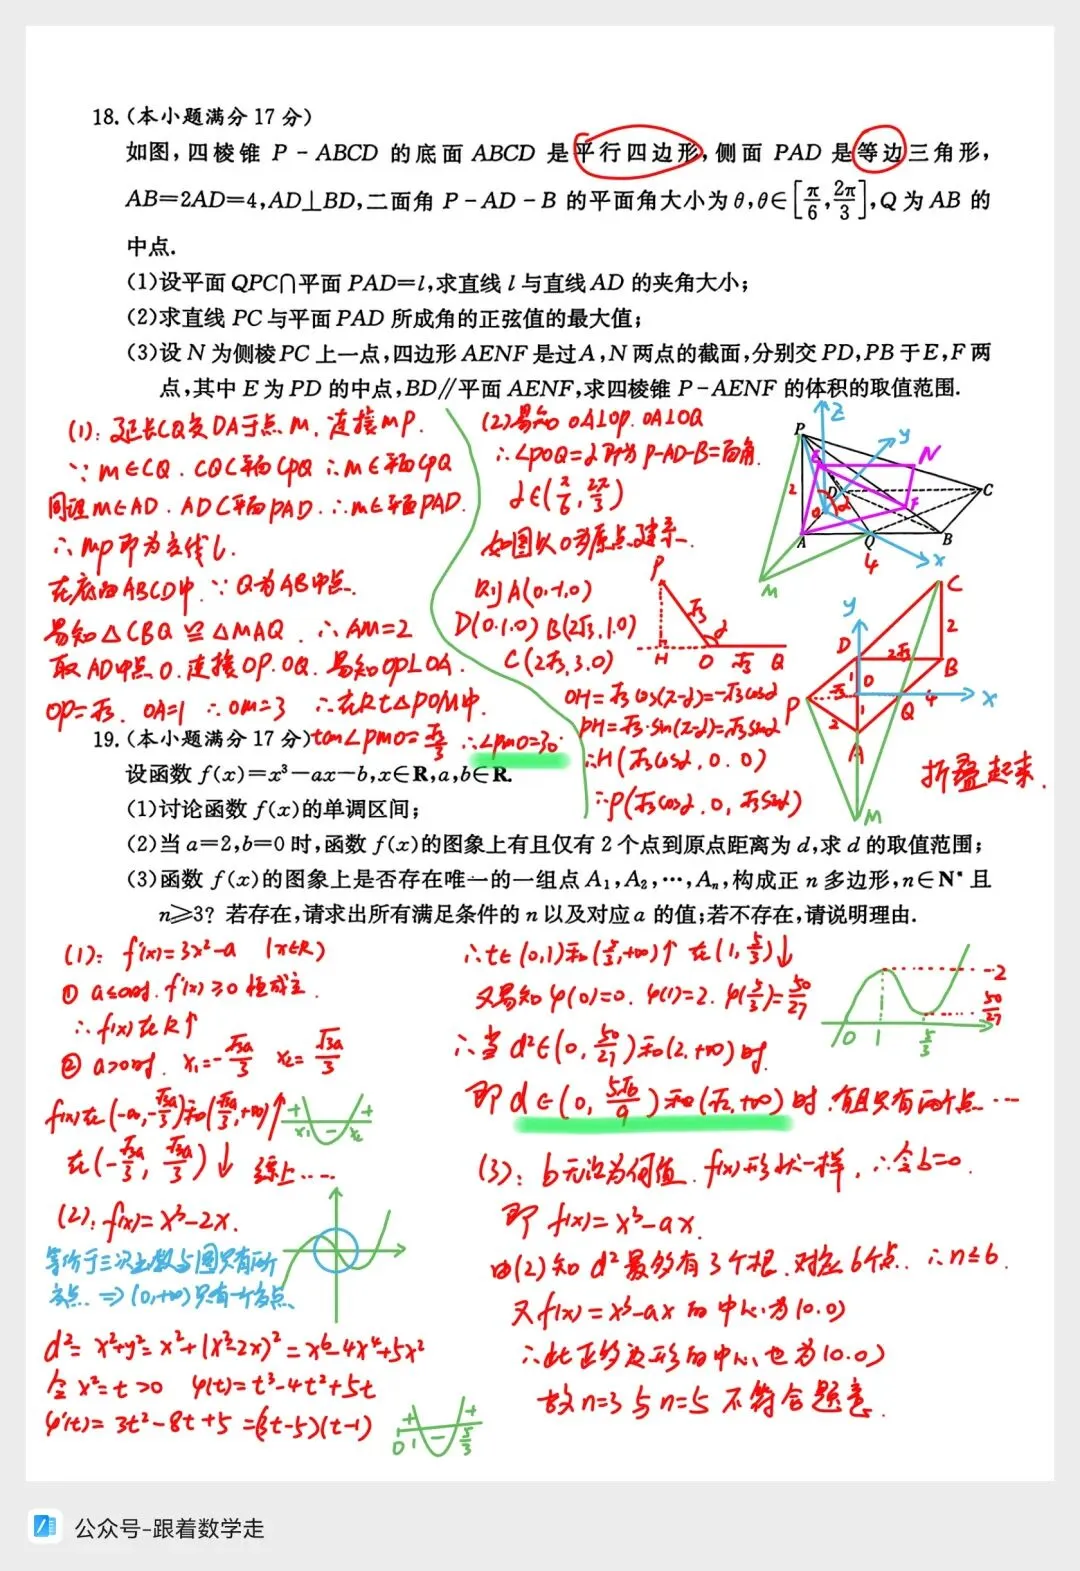 18.(本小题满分 17 分)
如图,四棱锥 P-ABCD 的底面 ABCD 是平行四边形,侧面 PAD 是等边三角形,
AB=2AD=4,AD⊥BD,二面角 P-AD-B 的平面角大小为θ,θ∈[π/6,2π/3],Q 为 AB 的
中点.
(1)设平面 QPC∩平面 PAD=l,求直线 l 与直线 AD 的夹角大小;
(2)求直线 PC 与平面 PAD 所成角的正弦值的最大值;
(3)设 N 为侧棱 PC 上一点,四边形 AENF 是过 A,N 两点的截面,分别交 PD,PB 于 E,F 两
点,其中 E 为 PD 的中点,BD∥平面 AENF,求四棱锥 P-AENF 的体积的取值范围.
(1): 延长CQ交DA于点M,连接MP.
∵ M∈CQ. CQ⊂平面CPQ ∴M∈平面CPQ
同理M∈AD. AD⊂平面PAD. ∴M∈平面PAD.
∴ MP即为交线l.
在底面ABCD中. ∵Q为AB中点.
易知△CBQ≌△MAQ. ∴AM=2
取AD中点O.连接OP.OQ.易知OP⊥OA.
OP=√3. OA=1 ∴OM=3 ∴在Rt△POM中.
tan∠PMO=√3/3 ∴∠PMO=30°
(2)易知OA⊥OP. OA⊥OQ
∴∠POQ=α即为P-AD-B二面角.
α∈(π/6,2π/3)
如图以O为原点建系.
则A(0,-1,0)
D(0,1,0) B(2√3,1,0)
C(2√3,3,0)
OH=√3cos(π-α)=-√3cosα
PH=√3·sin(π-α)=√3sinα
∴H(√3cosα,0,0)
∴P(√3cosα,0,√3sinα)
P
√3
α
H O √3 Q
P
z
y
E
N
2
D
C
O
α
F
A
Q
B
4
x
M
y
C
D
2√3
2
B
1
O
P
√3
4
x
Q
2
1
A
M
折叠起来.
19.(本小题满分 17 分)
设函数 f(x)=x³-ax-b,x∈R,a,b∈R.
(1)讨论函数 f(x)的单调区间;
(2)当 a=2,b=0 时,函数 f(x)的图象上有且仅有 2 个点到原点距离为 d,求 d 的取值范围;
(3)函数 f(x)的图象上是否存在唯一的一组点 A₁,A₂,…,Aₙ,构成正 n 多边形,n∈N* 且
n≥3? 若存在,请求出所有满足条件的 n 以及对应 a 的值;若不存在,请说明理由.
(1): f'(x)=3x²-a (x∈R)
① a≤0时. f'(x)≥0 恒成立.
∴ f(x)在R↑
② a>0时. x₁=-√3a/3 x₂=√3a/3
f(x)在(-∞,-√3a/3)和(√3a/3,+∞)↑
在(-√3a/3, √3a/3)↓ 综上……
+ - +
x₁ x₂
(2): f(x)=x³-2x.
等价于三次函数与圆只有两
交点. ⇒(0,+∞)只有一个交点.
d²=x²+y²=x²+(x³-2x)²=x⁶-4x⁴+5x²
令x²=t>0 φ(t)=t³-4t²+5t
φ'(t)=3t²-8t+5=(3t-5)(t-1)
+ - +
0 1 5/3
∴t∈(0,1)和(5/3,+∞)↑ 在(1,5/3)↓
又易知φ(0)=0. φ(1)=2. φ(5/3)=50/27
∴当 d²∈(0,50/27)和(2,+∞)时
即 d∈(0,5√6/9)和(√2,+∞)时.有且只有两个点……
2
50/27
0 1 5/3
(3): b无论为何值. f(x)形状一样, ∴令b=0.
即 f(x)=x³-ax.
由(2)知 d²最多有3个根.对应6个点. ∴n≤6.
又f(x)=x³-ax的中心为(0,0)
∴此正多边形的中心也为(0,0)
故n=3与n=5不符合题意.
公众号-跟着数学走